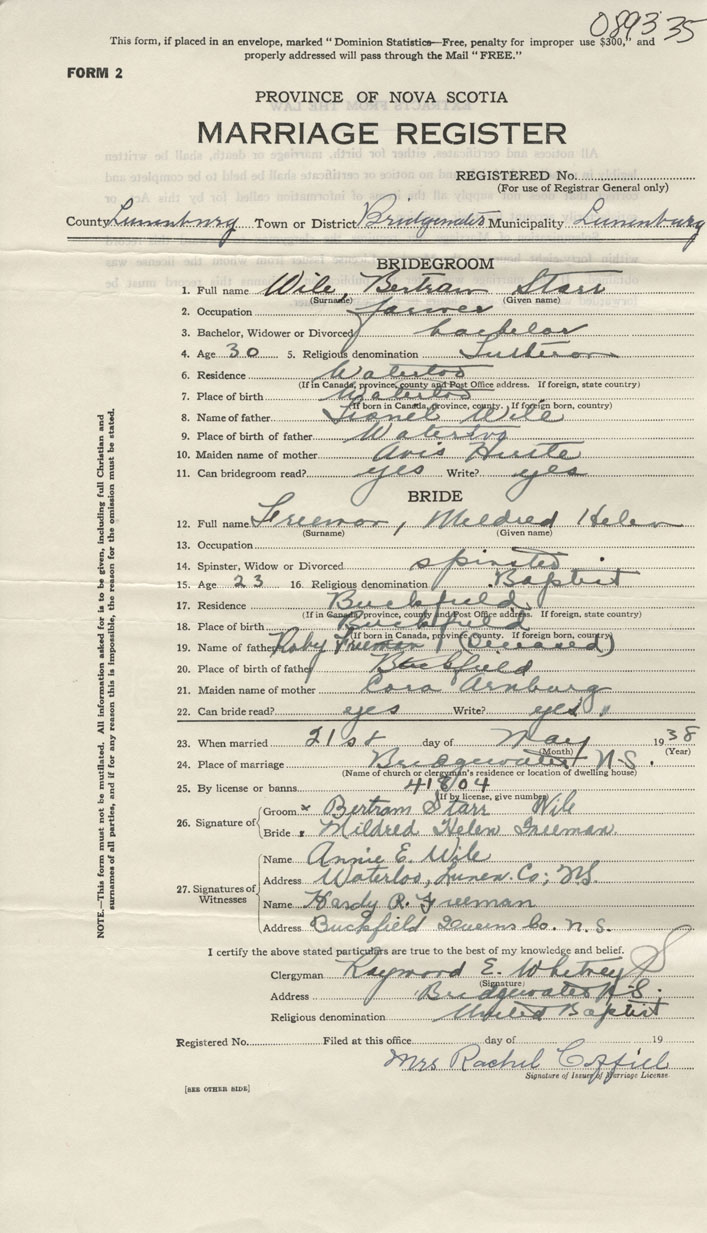 089335
This form, if placed in an envelope, marked "Dominion Statistics—Free, penalty for improper use $300," and
properly addressed will pass through the Mail "FREE."
FORM 2
PROVINCE OF NOVA SCOTIA
MARRIAGE REGISTER
REGISTERED No.
(For use of Registrar General only)
County Lunenburg Town or District Bridgewater Municipality Lunenburg
BRIDEGROOM
1. Full name Wile, Bertram Starr
(Surname) (Given name)
2. Occupation farmer
3. Bachelor, Widower or Divorced bachelor
4. Age 30 5. Religious denomination Lutheran
6. Residence Waterloo
(If in Canada, province, county and Post Office address. If foreign, state country)
7. Place of birth Waterloo
(If born in Canada, province, county. If foreign born, country)
8. Name of father Lionel Wile
9. Place of birth of father Waterloo
10. Maiden name of mother Avis
11. Can bridegroom read? yes Write? yes
BRIDE
12. Full name Freeman, Mildred Helen
(Surname) (Given name)
13. Occupation
14. Spinster, Widow or Divorced spinster
15. Age 23 16. Religious denomination Baptist
17. Residence Buckfield
(If in Canada, province, county and Post Office address. If foreign, state country)
18. Place of birth Buckfield
(If born in Canada, province, county. If foreign born, country)
19. Name of father Roby Freeman (Deceased)
20. Place of birth of father Buckfield
21. Maiden name of mother Cora Arnburg
22. Can bride read? yes Write? yes
23. When married 21st day of May 1938
(Month) (Year)
24. Place of marriage Bridgewater N.S.
(Name of church or clergyman's residence or location of dwelling house)
25. By license or banns 41804
(If by license, give number)
26. Signature of
Groom x Bertram Starr Wile
Bride x Mildred Helen Freeman
27. Signatures of Witnesses
Name Annie E. Wile
Address Waterloo, Lunen. Co; N.S.
Name Hardy R. Freeman
Address Buckfield Queens Co. N.S.
I certify the above stated particulars are true to the best of my knowledge and belief.
Clergyman Raymond E. Whitney
(Signature)
Address Bridgewater N.S.
Religious denomination United Baptist
Registered No. Filed at this office day of 19
Mrs Rachel
Signature of Issuer of Marriage License
[SEE OTHER SIDE]
NOTE.—This form must not be mutilated. All information asked for is to be given, including full Christian and
surnames of all parties, and if for any reason this is impossible, the reason for the omission must be stated.